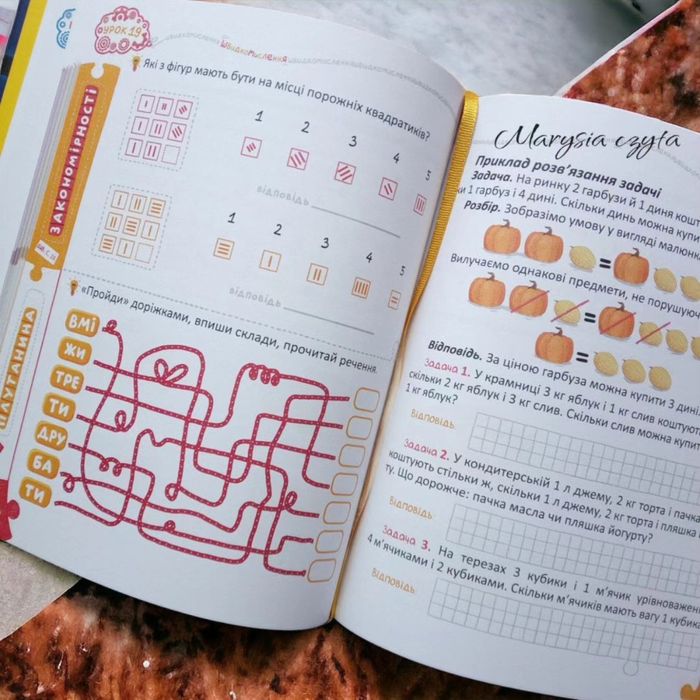 УРОК 19
Швидкомислення
ЗАКОНОМІРНОСТІ
Які з фігур мають бути на місці порожніх квадратиків?
1 2 3 4 5
відповідь
1 2 3 4 5
відповідь
ПЛУТАНИНА
«Пройди» доріжками, впиши склади, прочитай речення.
ВМІ
ЖИ
ТРЕ
ТИ
ДРУ
БА
ТИ
Marysia czyta
Приклад розв'язання задачі
Задача. На ринку 2 гарбузи й 1 диня
1 гарбуз і 4 дині. Скільки динь можна
Розбір. Зобразімо умову у вигляді
= 
Вилучаємо однакові предмети, не
=
=
Відповідь. За ціною гарбуза можна купити 3
Задача 1. У крамниці 3 кг яблук і 1 кг слив
скільки 2 кг яблук і 3 кг слив. Скільки слив можна
1 кг яблук?
Відповідь:
Задача 2. У кондитерській 1 л джему, 2 кг торта і пачка
коштують стільки ж, скільки 1 л джему, 2 кг торта і пляшка
ту. Що дорожче: пачка масла чи пляшка йогурту?
Відповідь:
Задача 3. На терезах 3 кубики і 1 м'ячик
4 м'ячиками і 2 кубиками. Скільки м'ячиків мають вагу 1
Відповідь: